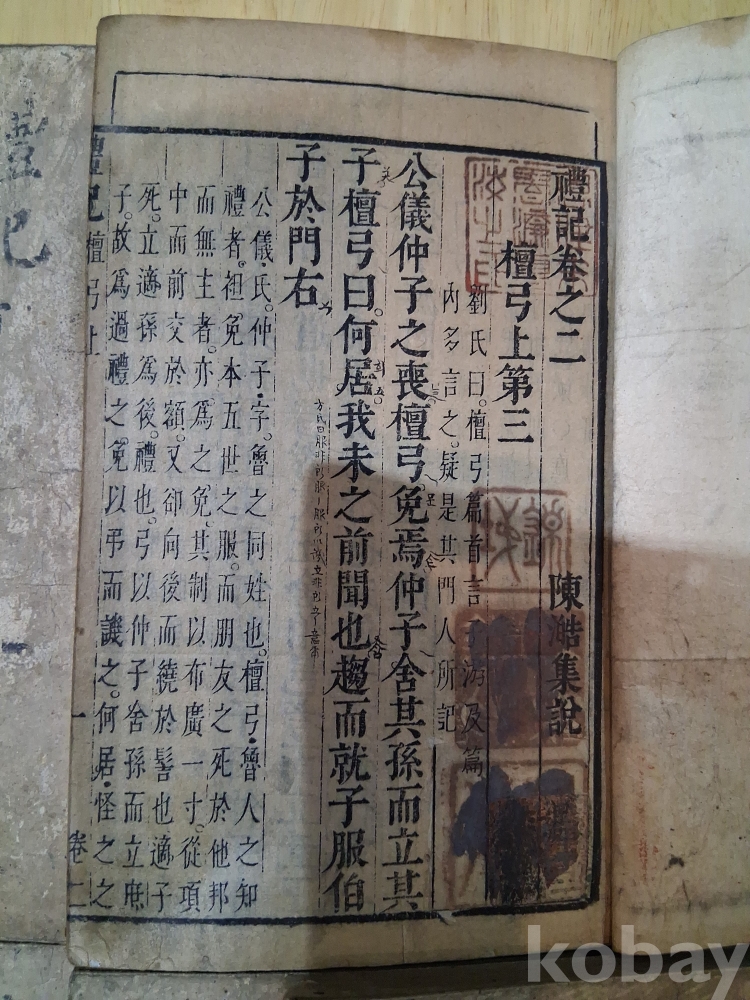 禮記卷之二
陳澔集說
檀弓上第三
劉氏曰。檀弓篇首言子游及篇
內多言之。疑是其門人所記
公儀仲子之喪檀弓免焉仲子舍其孫而立其
子檀弓曰。何居。我未之前聞也趨而就子服伯
子於門右
公儀。氏。仲子。字。魯之同姓也。檀弓。魯人之知
禮者。袒免本五世之服。而朋友之死於他邦
而無主者。亦為之免。其制以布廣一寸。從項
中而前交於額。又卻向後而繞於髻也適子
死。立適孫為後。禮也。弓以仲子舍孫而立庶
子。故為過禮之免以弔而譏之。何居。怪之之
禮記 檀弓上 一 卷二
kobay